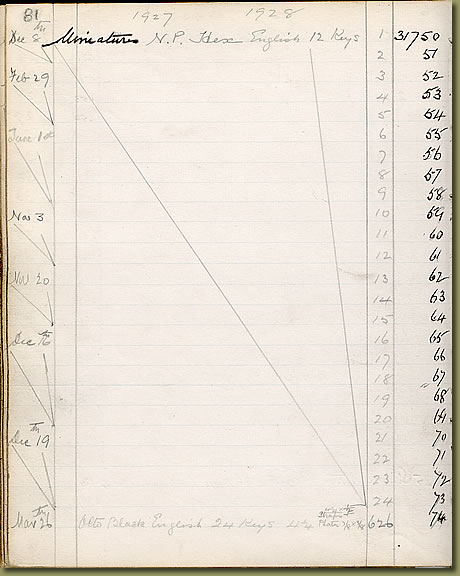 81 1927 1928
Dec 8th Miniatures N.P. Hex English 12 Keys 1 31750
2 51
Feb 29 3 52
4 53
5 54
June 1st 6 55
7 56
8 57
9 58
Nov 3 10 59
11 60
12 61
Nov 20 13 62
14 63
15 64
Dec 16th 16 65
17 66
18 67
19 68
20 69
Dec 19th 21 70
22 71
23 72
24 73
Mar 26th Octo Black English 24 Keys 626 74